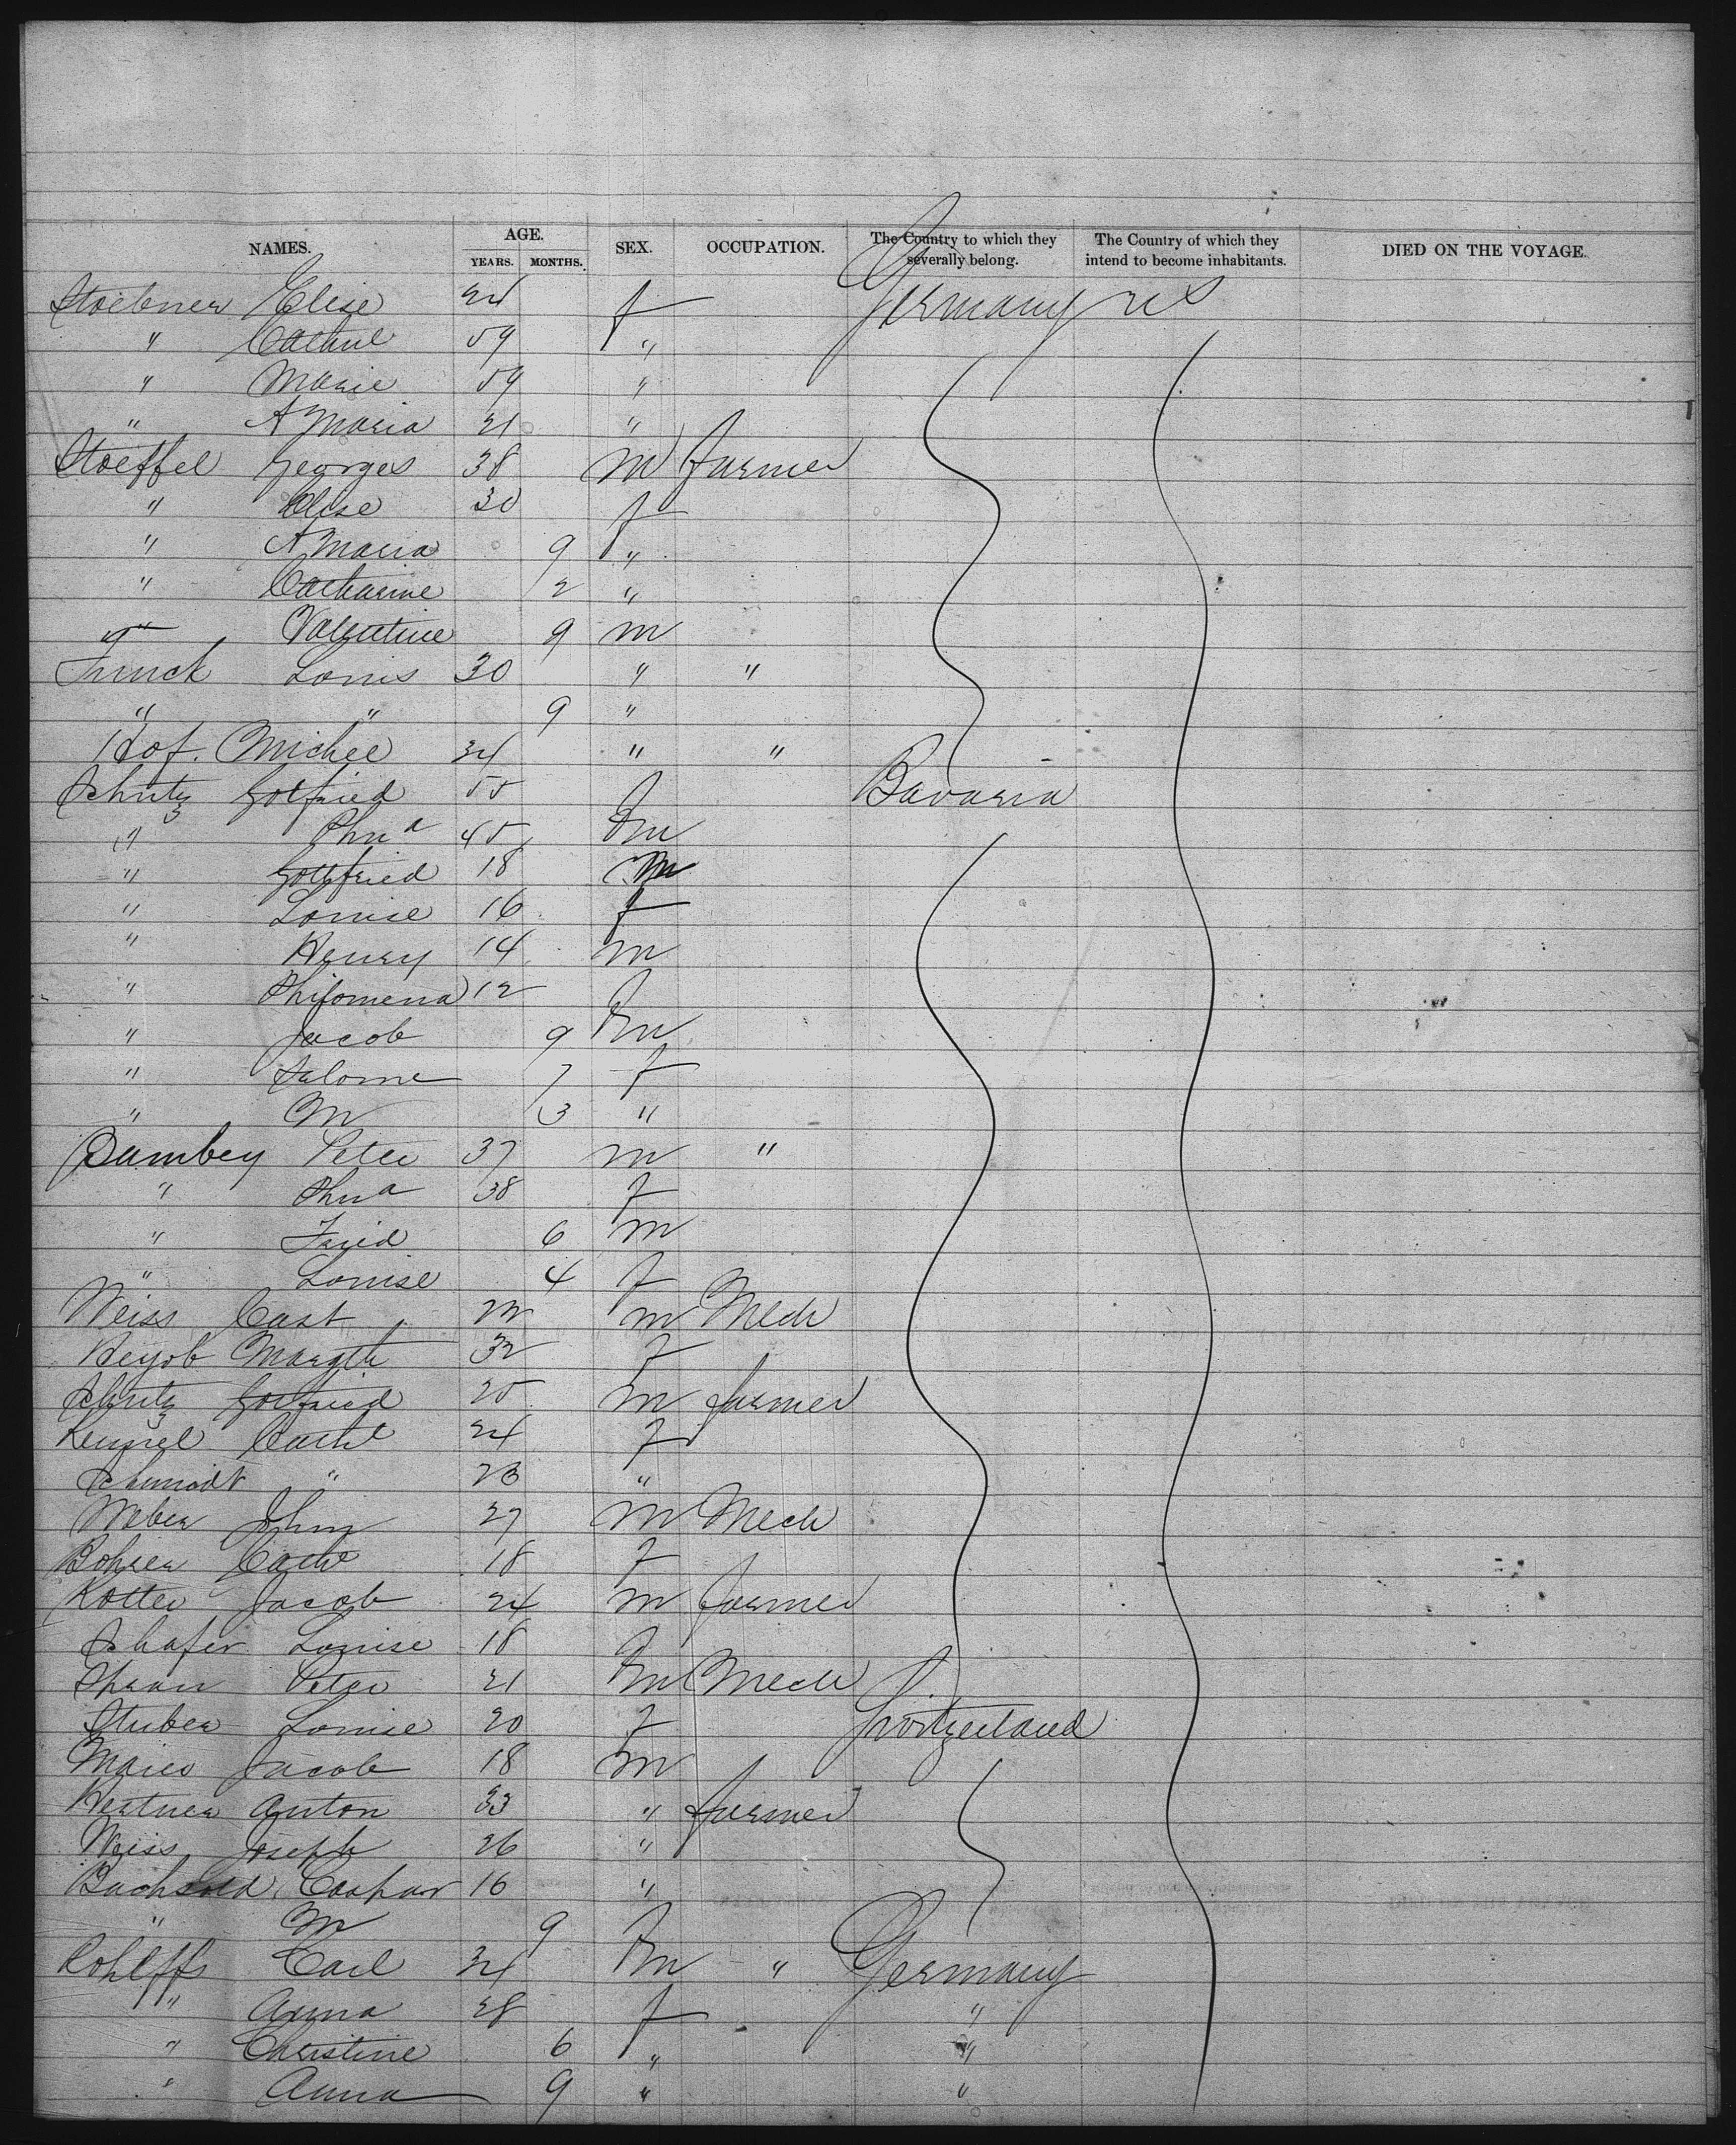 NAMES. AGE. SEX. OCCUPATION. The Country to which they severally belong. The Country of which they intend to become inhabitants. DIED ON THE VOYAGE.
YEARS. MONTHS.
Stoebner Elise 24 f Germany US
" Cathne 59 "
" Marie 59 "
" A Maria 21 "
Stoeffel Georges 38 m farmer
" Elise 30 f
" A Maria 9 "
" Catharine 2 "
" Valentine 9 m
Funck Louis 30 " "
" " 9 "
Hof. Michel 34 " "
Schutz Gotfried 55 Bavaria
" Phna 45 f
" Gottfried 18 m
" Louise 16 f
" Henry 14 m
" Philomena 12 f
" Jacob 9 m
" Salome 7 f
" M 3 "
Bambey Peter 37 m "
" Phna 38 f
" Fried 6 m
" Louise 4 f
Weiss Cast m Mech
Heyob Margth 32 f
Schutz Gotfried 25 m farmer
Kennel Cathe 24 f
Schmidt " 23 "
Weber John 27 m Mech
Bohrer Cath 18 f
Kotter Jacob 24 m farmer
Schafer Louise 18 f
Peter 21 m Mech
Stuber Louise 20 f Switzerland
Maier Jacob 18 m
Anton 33 " farmer
Weiss Joseph 26 "
Caspar 16 "
" M 9 f
Rohlffs Carl 34 m " Germany
" Anna 28 f "
" Christine 6 " "
" Anna 9 " "